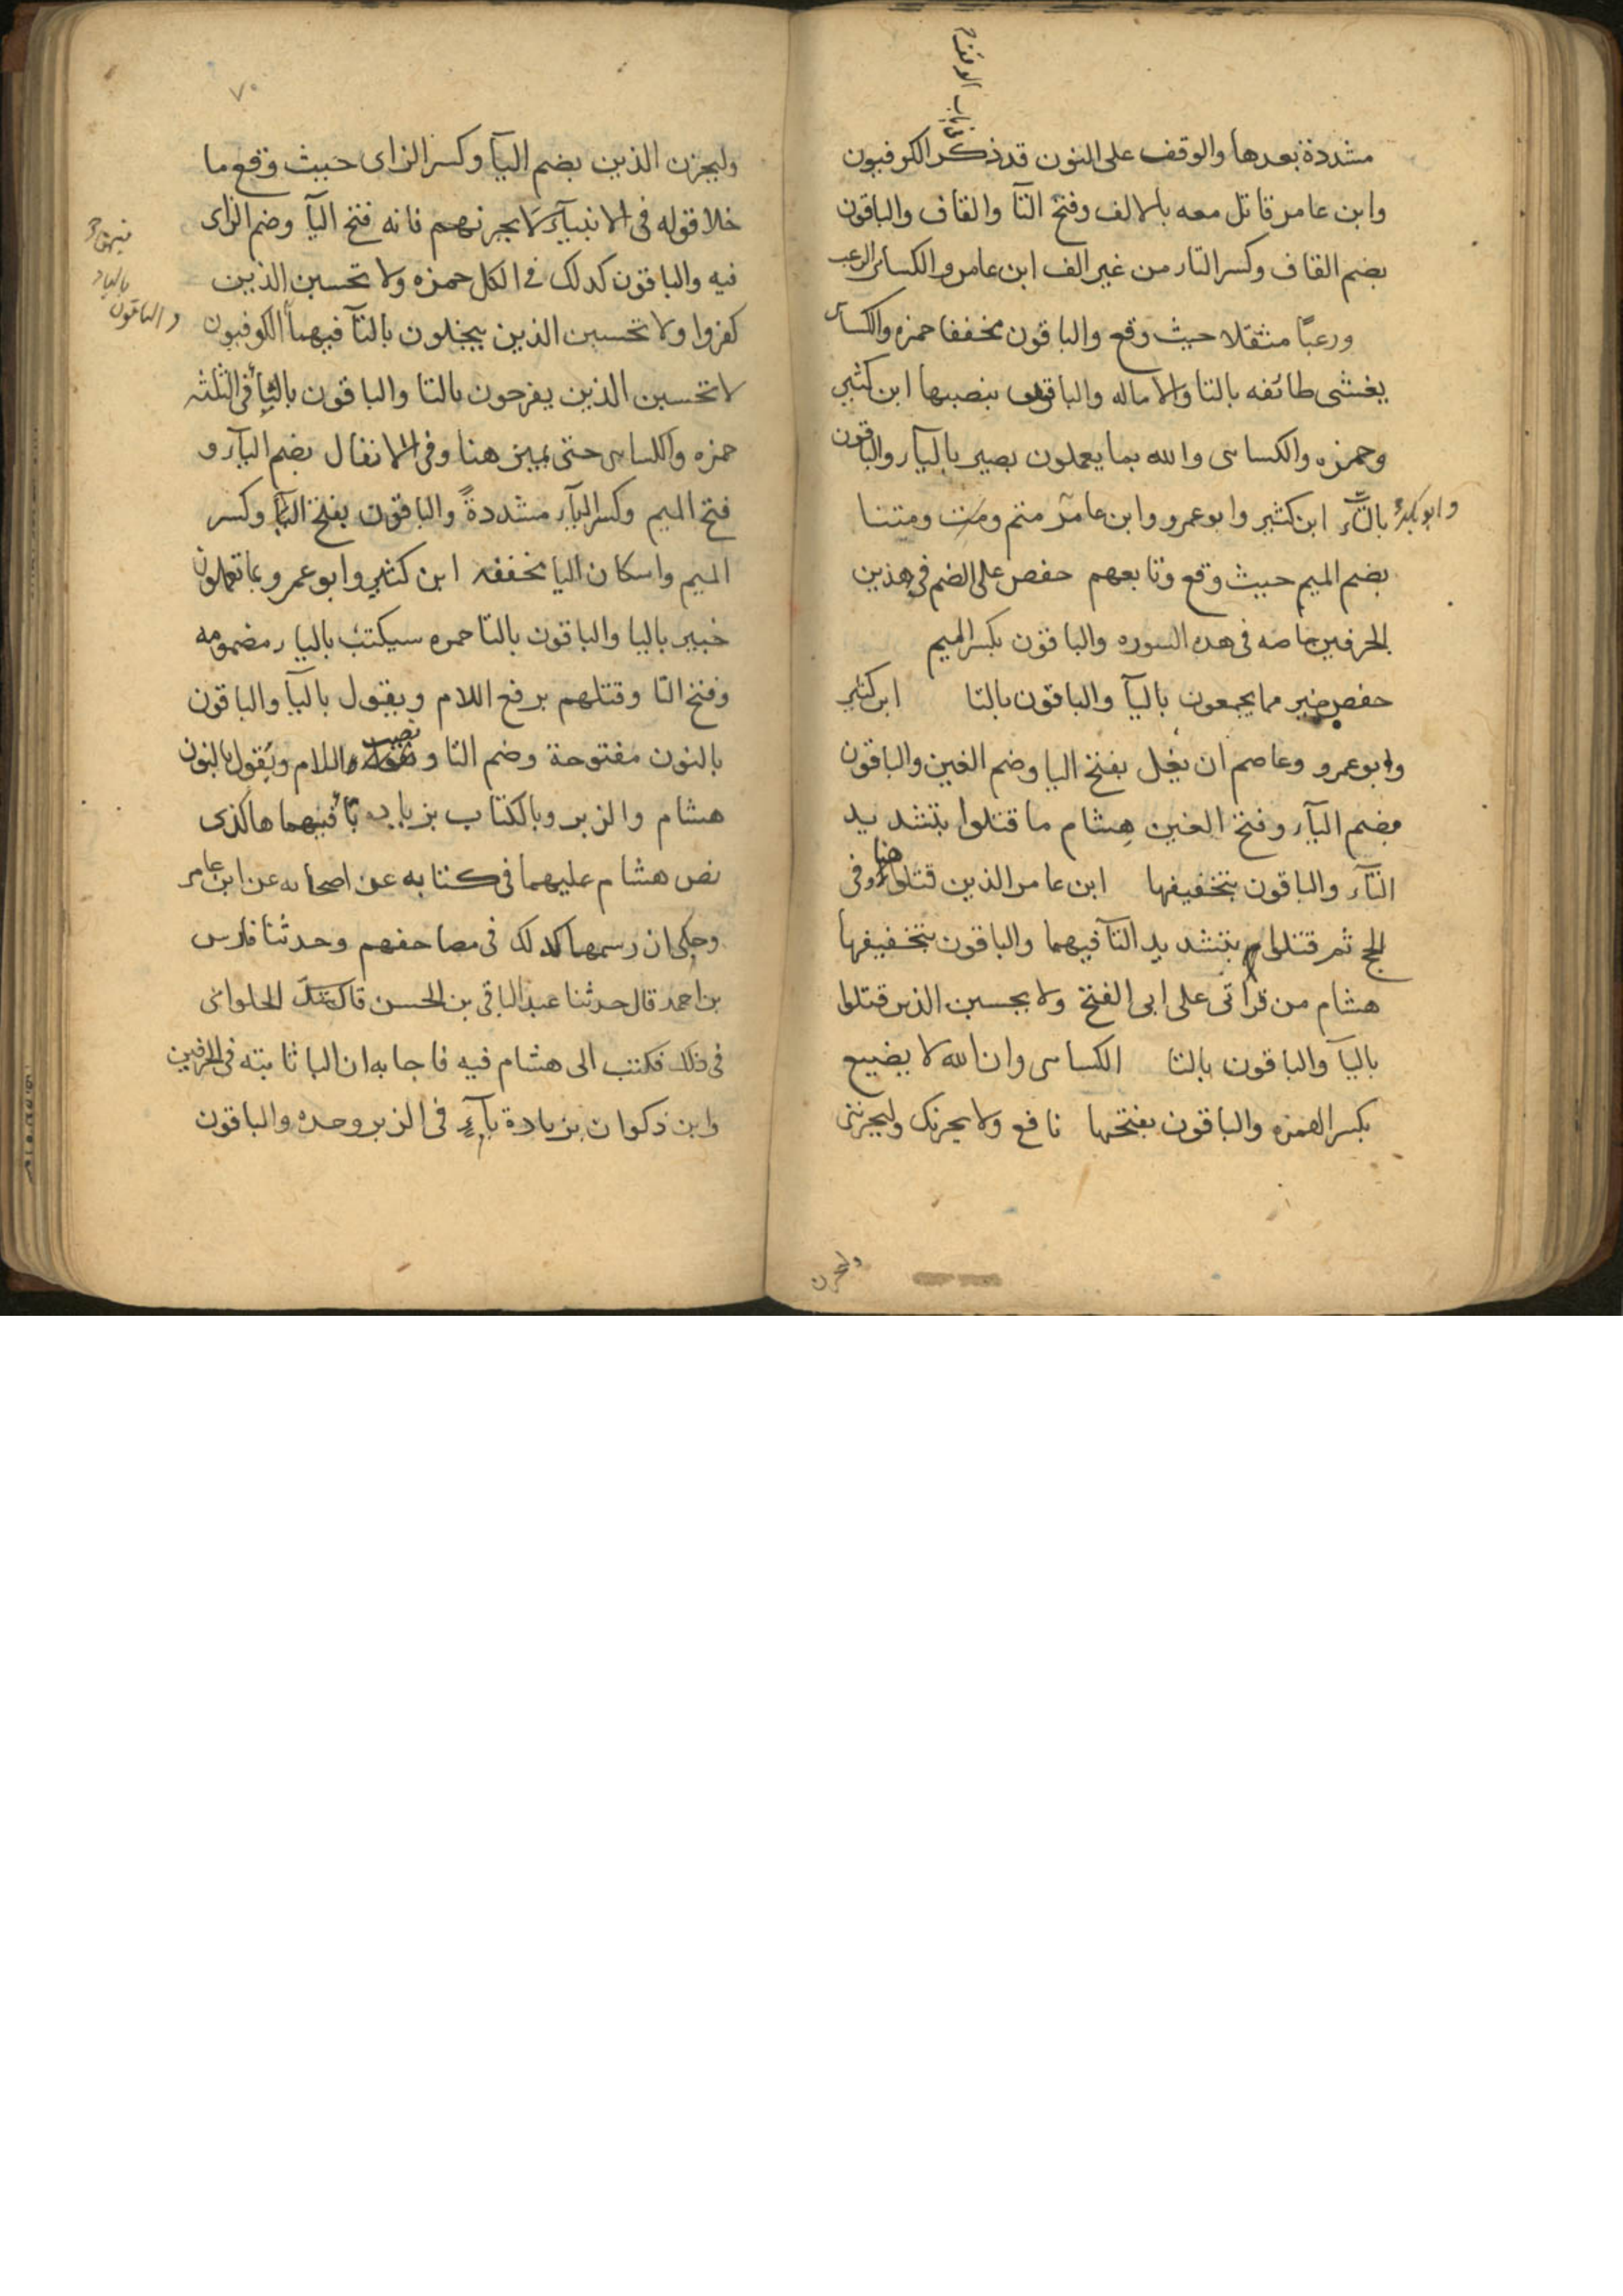 مشددة بعدها والوقف على النون قد ذكر الكوفيون
فى باب الوقف
وابن عامر قاتل معه بالالف وفتح التآ والقاف والباقون
بضم القاف وكسر التاء من غير الف ابن عامر والكسائى الرعب
ورعبًا مثقلا حيث وقع والباقون مخففا حمزه والكسائى
يغشى طائفه بالتا والاماله والباقون بنصبها ابن كثير
وحمزه والكسائى والله بما يعملون بصير باليآء والباقون
بالتآء ابن كثير وابو عمرو وابن عامر متم ومت ومتنا
وابو بكر
بضم الميم حيث وقع وتابعهم حفص على الضم فى هذين
الحرفين خاصه فى هده السوره والباقون بكسر الميم
حفص خير مما يجمعون باليآ والباقون بالتا ابن كثير
وابو عمرو وعاصم ان يغل بفتح اليا وضم الغين والباقون
بضم اليآء وفتح الغين هشام ما قتلوا بتشديد
التآء والباقون بتخفيفها ابن عامر الذين قتلوا هنا وفى
الحج ثم قتلوا بتشديد التآ فيهما والباقون بتخفيفها
هشام من قرآتى على ابى الفتح ولا يحسبن الذين قتلوا
باليآ والباقون بالتا الكسائى وان الله لا يضيع
بكسر الهمزه والباقون بفتحها نافع ولا يحزنك وليحزننى
وليحزن
٧٠
وليحزن الذين بضم اليآ وكسر الزاى حيث وقع ما
خلا قوله فى الانبيآء لا يحزنهم فانه فتح اليآ وضم الزاى
فيه والباقون كدلك فى الكل حمزه ولا تحسبن الذين
كفروا ولا تحسبن الذين يبخلون بالتآ فيهما الكوفيون
فيهما
بالياء
والباقون
لا تحسبن الذين يفرحون بالتا والباقون باليآ فى الثلثه
حمزه والكسائى حتى يميز هنا وفى الانفال بضم اليآء و
فتح الميم وكسر اليآء مشددةً والباقون بفتح اليآ وكسر
الميم واسكان اليا مخففه ابن كثير وابو عمرو بما تعملون
خبير باليا والباقون بالتا حمزه سيكتب باليا مضمومه
وفتح التا وقتلهم برفع اللام ويقول باليآ والباقون
بالنون مفتوحة وضم التا ونصب اللام ونقول بالنون
هشام والزبر وبالكتاب بزياده بآ فيهما هاكذى
نص هشام عليهما فى كتابه عن اصحابه عن ابن عامر
وحكى ان رسمهما كدلك فى مصاحفهم وحدثنا فارس
بن احمد قال حدثنا عبد الباقى بن الحسن قال شك الحلوانى
فى ذلك فكتب الى هشام فيه فاجابه ان البا ثابته فى الحرفين
وابن ذكوان بزيادة بآءٍ فى الزبر وحده والباقون